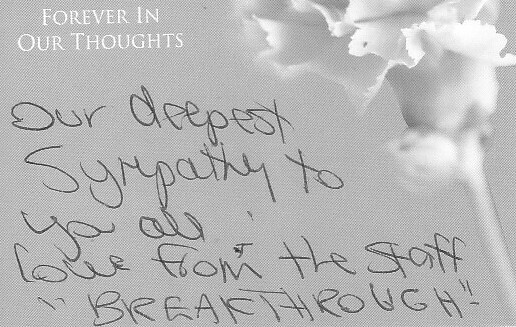 FOREVER IN
OUR THOUGHTS
Our deepest
Sympathy to
ya all.
Love from the staff
"BREAKTHROUGH"